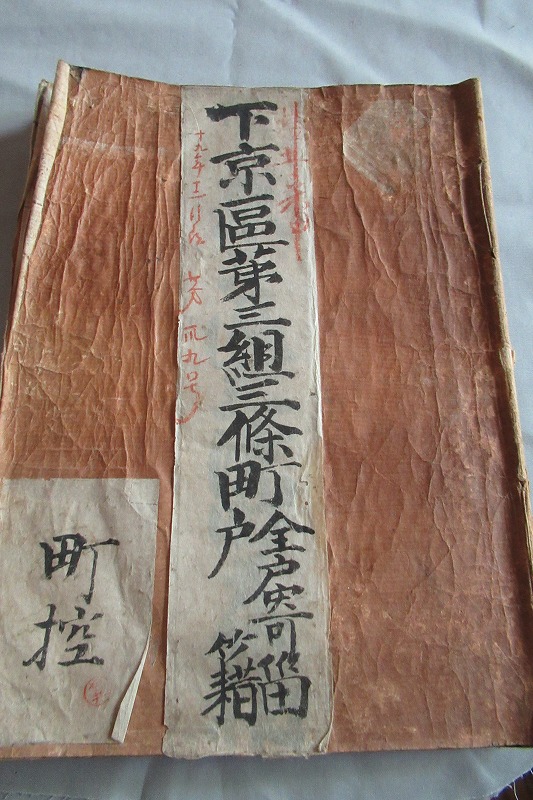 下京區第三組三條町
全戸寄留
戸籍
十九年十二月改
町控